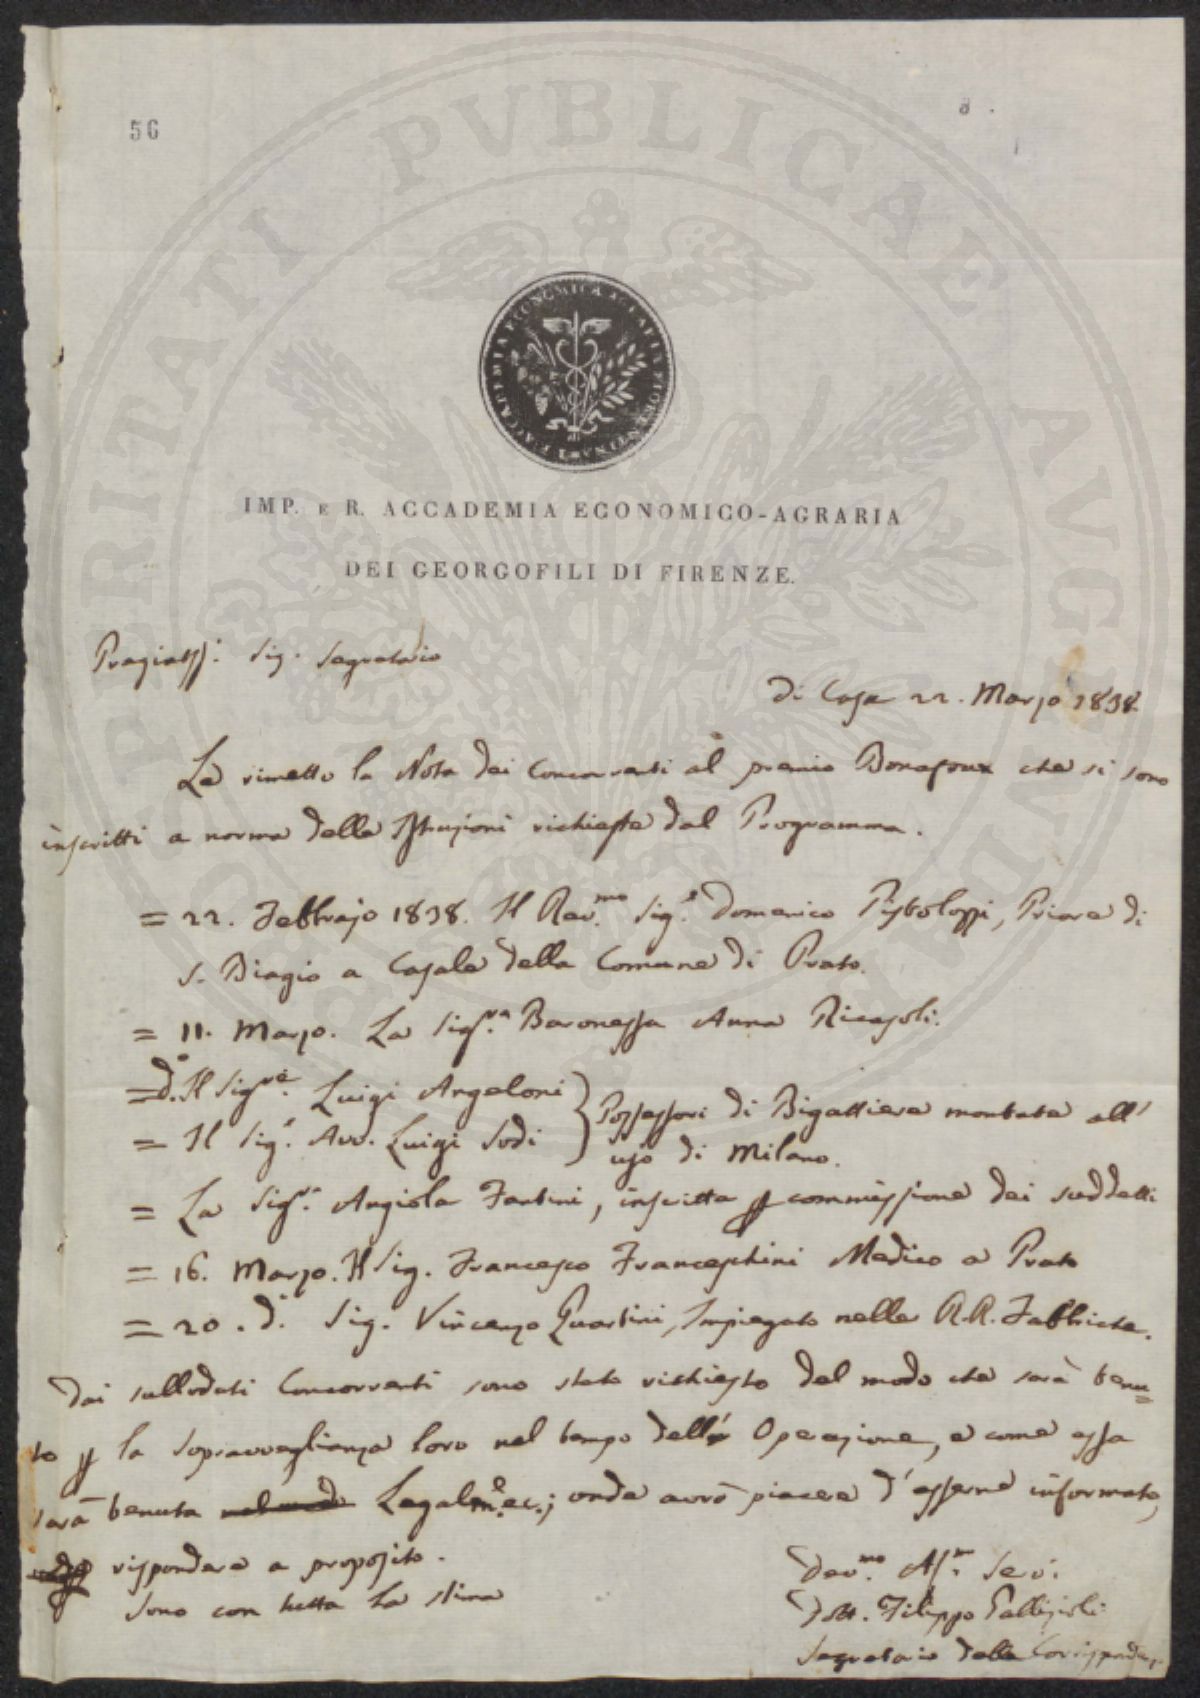 56
PROSPERITATI PVBLICAE AVGENDAE
IMP. E R. ACCADEMIA ECONOMICO-AGRARIA
DEI GEORGOFILI DI FIRENZE.
Pregiatss: Sig. Segretario
Di Casa 22. Marzo 1838
Le rimetto la Nota dei Concorrenti al premio Bonafoux che si sono
inscritti a norma delle Istruzioni richieste dal Programma.
= 22. Febbrajo 1838. Il Rev.mo Sig.e Domenico Pistolozzi, Priore di
S. Biagio a Casale della Comune di Prato.
= 11. Marzo. La Sig.ra Baronessa Anna Ricasoli.
= d.o Il Sig.re Luigi Angeloni
= Il Sig.e Avv. Luigi Sodi
Possessori di Bigattiera montata all'
uso di Milano.
= La Sig.ra Angiola Fantini, inscritta p commissione dei suddetti
= 16. Marzo. Il Sig. Francesco Franceschini Medico a Prato
= 20. d.o Sig. Vincenzo Guartini, Impiegato nelle R.R. Fabbriche.
Dai sullodati Concorrenti sono stato richiesto del modo che sarà tenu=
to p la sopravveglianza loro nel tempo dell' Operazione, e come essa
sarà tenuta Legalm.e ec.; onde avrò piacere d'esserne informato,
rispondere a proposito.
Sono con tutta la stima
Dev.mo Servi:
Dott. Filippo Gallizioli
Segretario delle Corrisponden.